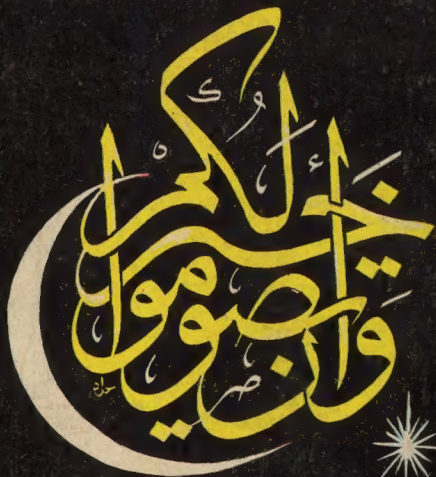 وَأَن تَصُومُوا
خَيْرٌ لَّكُمْ